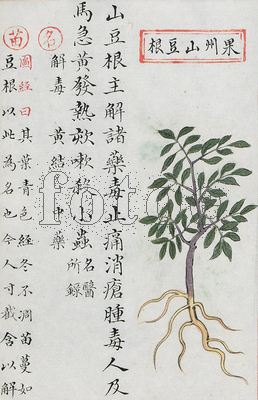 果州山豆根
山豆根主解諸藥毒止痛消瘡腫毒人及
馬急黃發熱欬嗽殺小蟲名醫所錄
名
解毒 黃結 中藥
苗
圖經曰其葉青色經冬不凋苗蔓如
豆根以此為名也今人寸截含以解
foto